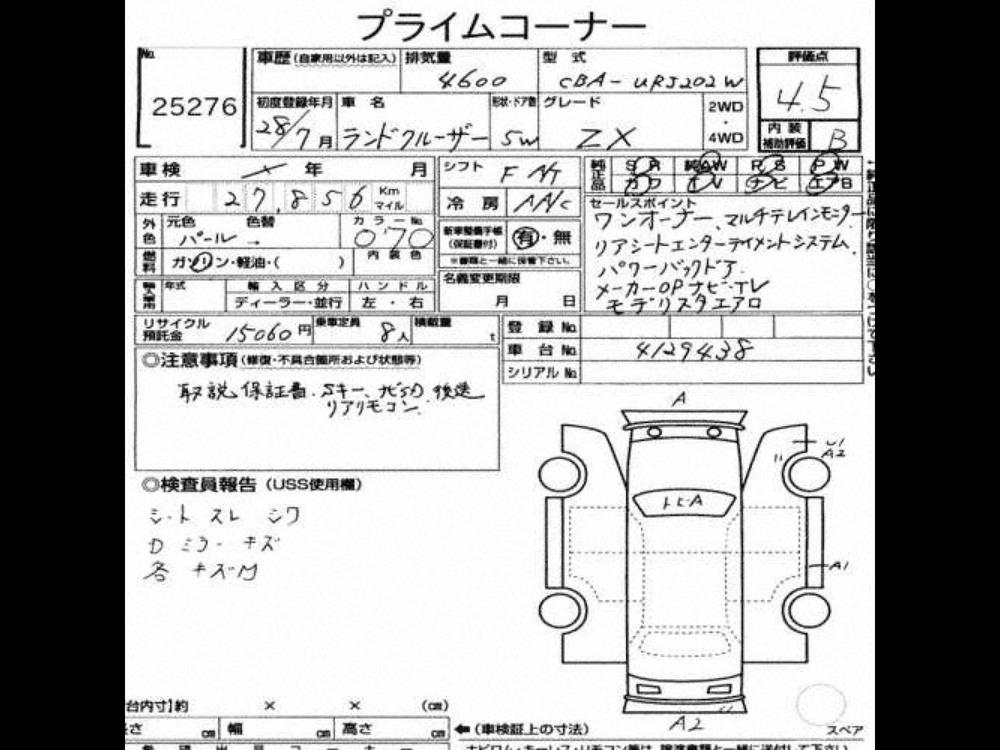 プライムコーナー
No.
25276
車歴 (自家用以外は記入) 排気量 型式
4600 CBA-URJ202W
評価点
4.5
初度登録年月 車名 形状・ドア数 グレード 2WD・4WD
28/7月 ランドクルーザー 5W ZX
内装補助評価 B
車検 年 月
シフト F AT
純正品 SR 純AW RS PW
カワ TV ナビ エアB
走行 27,856 Km マイル
冷房 AAC
セールスポイント
ワンオーナー、マルチテレインモニター
リアシートエンターテイメントシステム、
パワーバックドア
メーカーOPナビ・TV
モデリスタエアロ
外色 元色 色替 カラーNo.
パール → 070
新車整備手帳(保証書付) 有・無
※書類と一緒に保管下さい。
燃料 ガソリン・軽油・( ) 内装色
名義変更期限
月 日
輸入車用 年式 輸入区分 ハンドル
ディーラー・並行 左・右
リサイクル預託金 15060円 乗車定員 8人 積載量 t
登録No.
車台No. 4129438
シリアルNo.
◎注意事項(修復・不具合箇所および状態等)
取説、保証書、Sキー、ナビSD、後送
リアリモコン、
◎検査員報告 (USS使用欄)
シート スレ シワ
D ミラー キズ
各 キズM
A
U1
A2
トビA
A1
A2
スペア
台内寸】約 × × (cm)
長さ cm 幅 cm 高さ cm ←(車検証上の寸法)